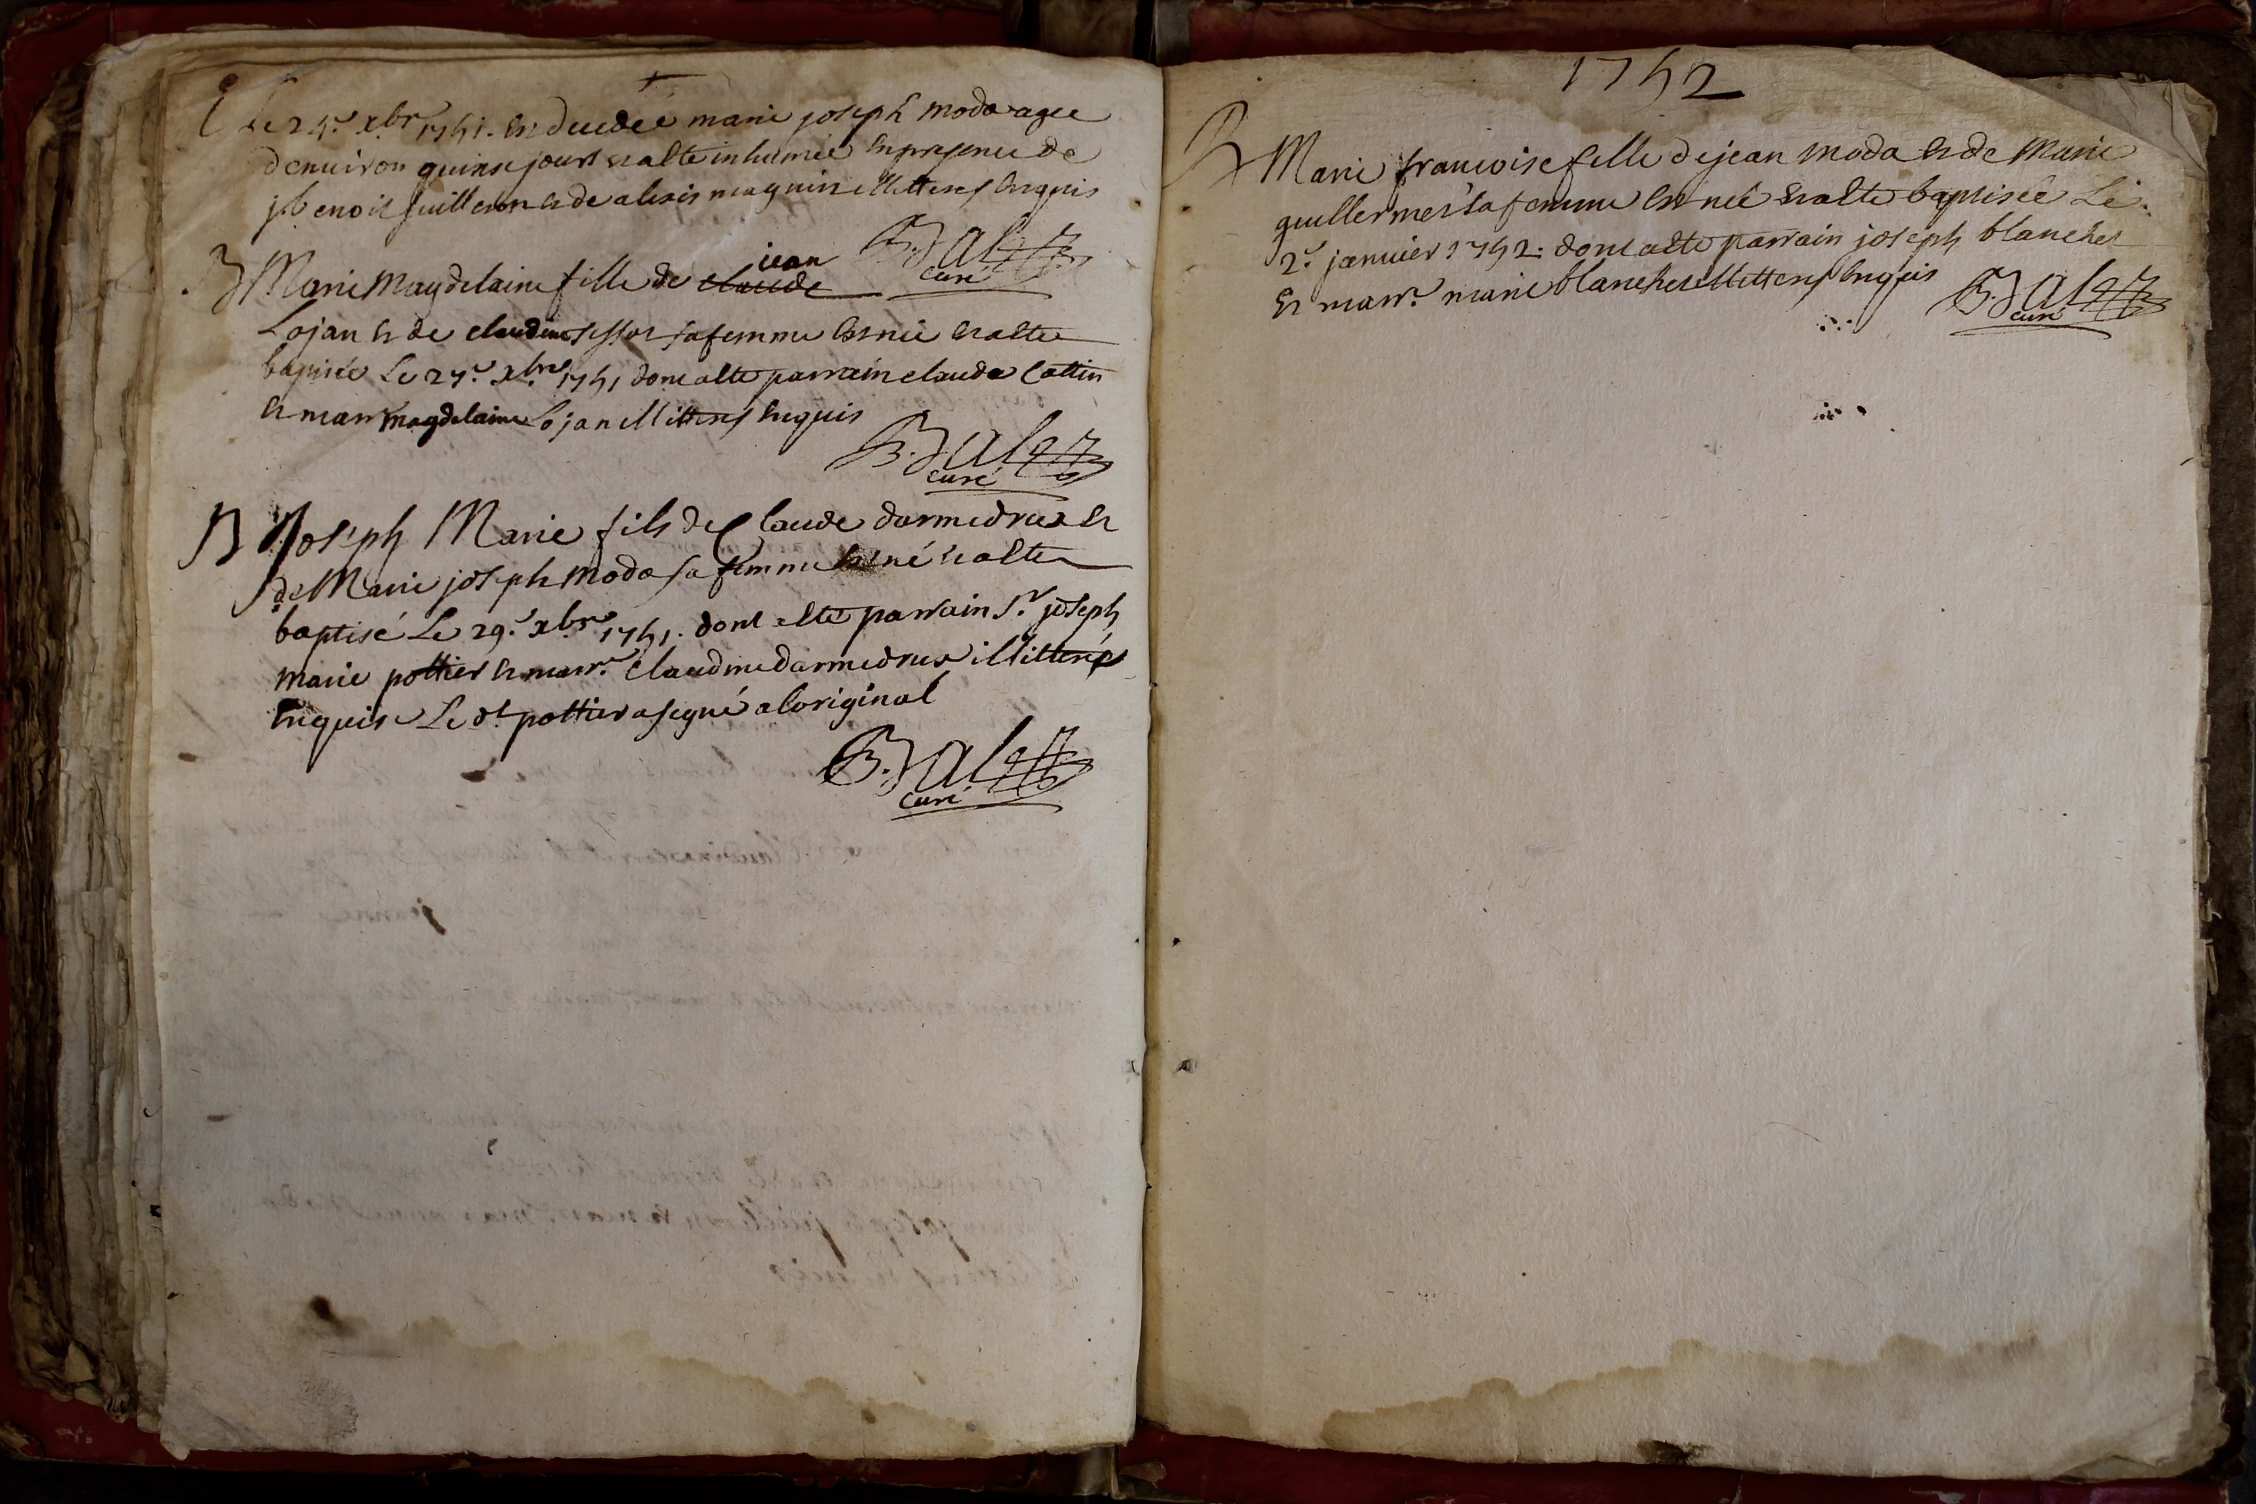 Le 24.e xbre 1751. est decedée marie joseph moda agee
denuiron quinse jours et a ete inhumée en presence de
j benoit juilleron et de alexis magnin illitteres enquis
B. Jalet
curé
B Marie Magdelaine fille de claude jean
Lojan et de claudine sessor sa femme est née et a ete
baptisée Le 27.e xbre 1751 dont a ete parrain claude Cattin
et marr magdelaine Lojan illitteres enquis
B. Jalet
curé
B Joseph Marie fils de Claude darmedrux et
de Marie joseph moda sa femme est né et a ete
baptisé Le 29.e xbre 1751. dont a ete parrain S.r joseph
marie pottier et marr.e claudine darmedrux illitterés
enquis Le dt pottier a segné a loriginal
B. Jalet
curé
1752
B Marie francoise fille de jean moda et de Marie
guillermet sa femme est neé et a ete baptisée Le
2.e janvier 1752. dont a ete parrain joseph blanchet
et marr.e marie blanchet illitteres enquis
B. Jalet
curé